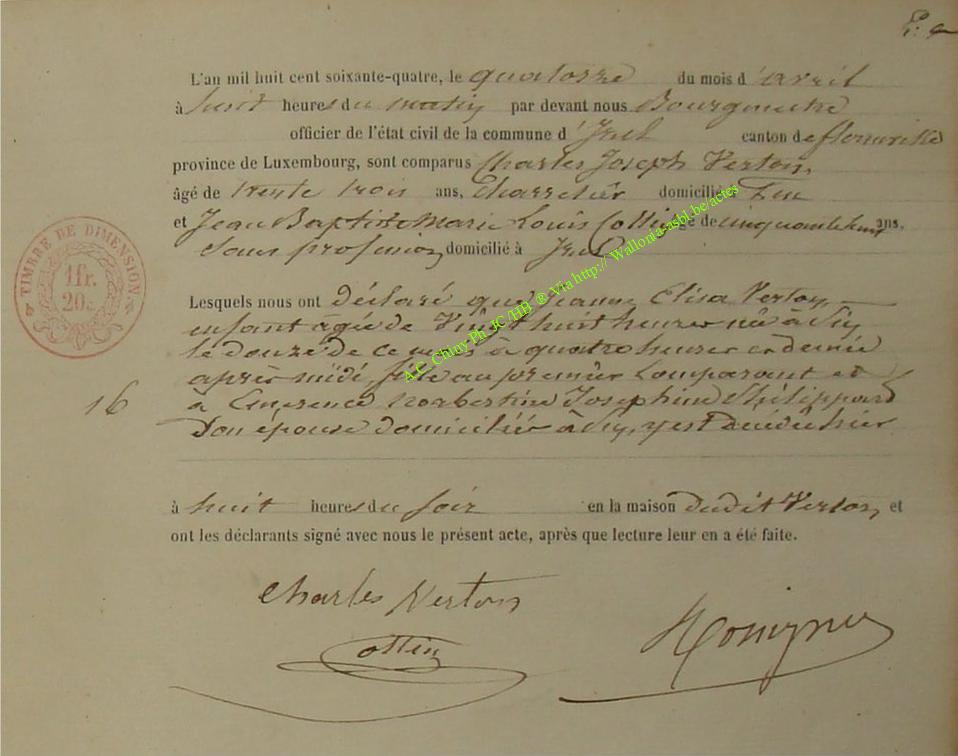 L'an mil huit cent soixante-quatre, le quatorze du mois d'avril
à huit heures du matin par devant nous Bourgmestre
officier de l'état civil de la commune d'Izel canton de florenville
province de Luxembourg, sont comparus Charles Joseph Verton,
âgé de trente trois ans, Charretier domicilié à
et Jean Baptiste Marie Louis Collin âgé de cinquante ans.
Sans profession, domicilié à Izel
Lesquels nous ont déclaré que Jeanne Elisa Verton,
enfant âgée de Vingt huit heures né à
le douze de ce mois à quatre heures et demie
après midi, fille au premier Comparant et
à Norbertine Josephine Philippard
Son épouse domiciliée à y est décédée hier
à huit heures du soir en la maison dudit Verton, et
ont les déclarants signé avec nous le présent acte, après que lecture leur en a été faite.
16
TIMBRE DE DIMENSION
1 fr.
20c.
Charles Verton
A.E. Chiny Ph. JC/HB ® Via http://Wallonia-asbl.be/actes